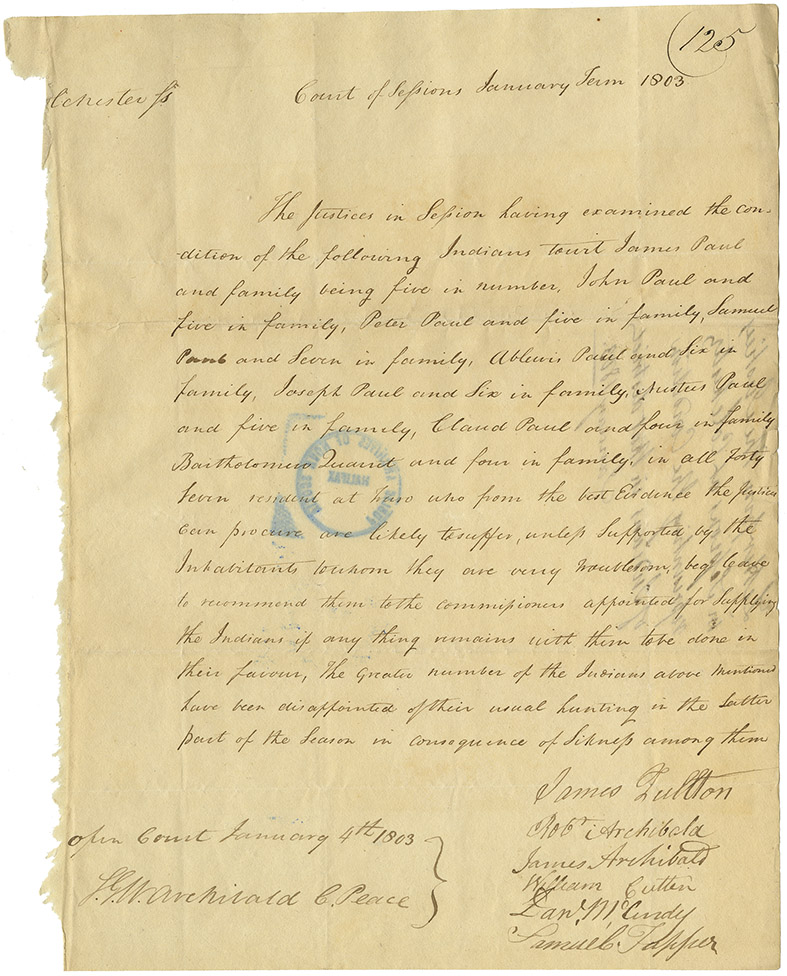 125
lchester ss
Court of Sessions January Term 1803
The Justices in Session having examined the con-
-dition of the following Indians towit James Paul
and family being five in number, John Paul and
five in family, Peter Paul and five in family, Samuel
Paul and Seven in family, Ablewis Paul and Six in
family, Joseph Paul and Six in family, Nustus Paul
and five in family, Claud Paul and four in family
Bartholomew Quarit and four in family, in all Forty
Seven resident at Truro who from the best Evidence the Justices
can procure are likely to suffer, unless Supported by the
Inhabitants towhom they are very troublesom, beg leave
to recommend them to the commisioners appointed for Supplying
the Indians if any thing remains with them to be done in
their favour, The Greater number of the Indians above mentioned
have been disappointed of their usual hunting in the Latter
part of the Season in consequence of Sikness among them
James Fullton
Robt Archibald
James Archibald
William Cutten
Danl McCurdy
Samuel Tupper
open Court January 4th 1803
S.G.W. Archibald C. Peace
HALIFAX